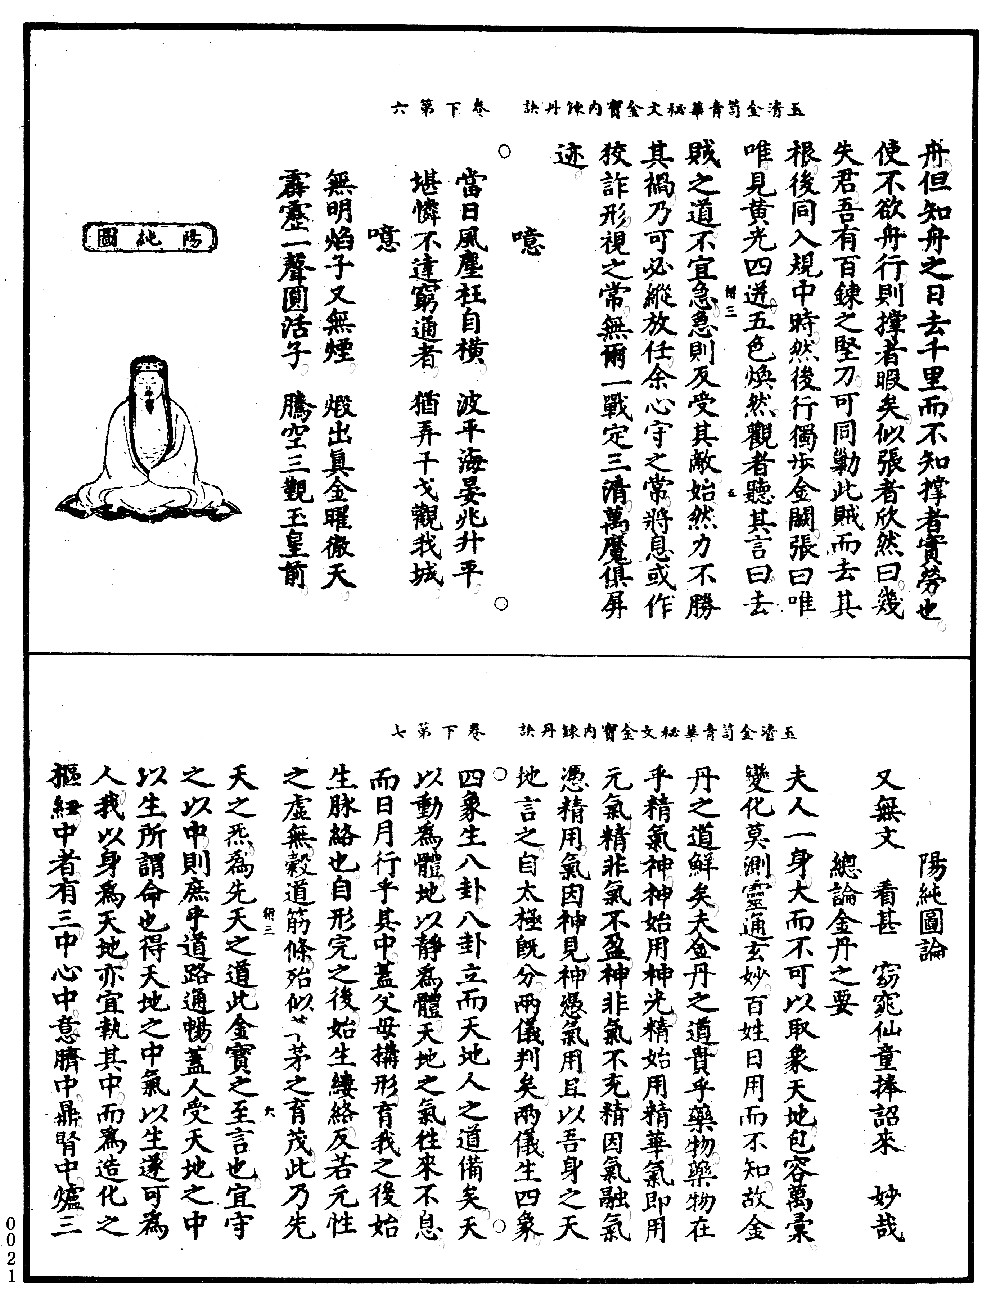 玉清金笥青華秘文金寶內鍊丹訣　卷下第六
舟但知舟之日去千里而不知撑者實勞也
使不欲舟行則撑者暇矣似張者欣然曰幾
失君吾有百鍊之堅刀可同勦此賊而去其
根後同入規中時然後行獨步金闕張曰唯
唯見黃光四迸五色煥然觀者聽其言曰去
賊之道不宜急急則反受其敵始然力不勝
其禍乃可必縱放任余心守之常將息或作
狡詐形視之常無爾一戰定三清萬魔俱屏
迹
噫
當日風塵枉自橫　波平海晏兆升平
堪憐不達窮通者　猶弄干戈觀我城
噫
無明焰子又無煙　煅出真金曜徹天
霹靂一聲圓活子　騰空三觀玉皇前
陽純圖
玉清金笥青華秘文金寶內鍊丹訣　卷下第七
陽純圖論
又無文　看甚　窈窕仙童捧詔來　妙哉
總論金丹之要
夫人一身大而不可以取象天地包容萬彙
變化莫測靈通玄妙百姓日用而不知故金
丹之道鮮矣夫金丹之道貴乎藥物藥物在
乎精氣神神始用神光精始用精華氣即用
元氣精非氣不盈神非氣不充精因氣融氣
憑精用氣因神見神憑氣用且以吾身之天
地言之自太極既分兩儀判矣兩儀生四象
四象生八卦八卦立而天地人之道備矣天
以動為體地以靜為體天地之氣往來不息
而日月行乎其中蓋父母搆形育我之後始
生脉絡也自形完之後始生縷絡反若元性
之虛無穀道筋條殆似茅之育茂此乃先
天之炁為先天之道此金寶之至言也宜守
之以中則庶乎道路通暢蓋人受天地之中
以生所謂命也得天地之中氣以生遂可為
人我以身為天地亦宜執其中而為造化之
樞紐中者有三中心中意臍中鼎腎中爐三
0021